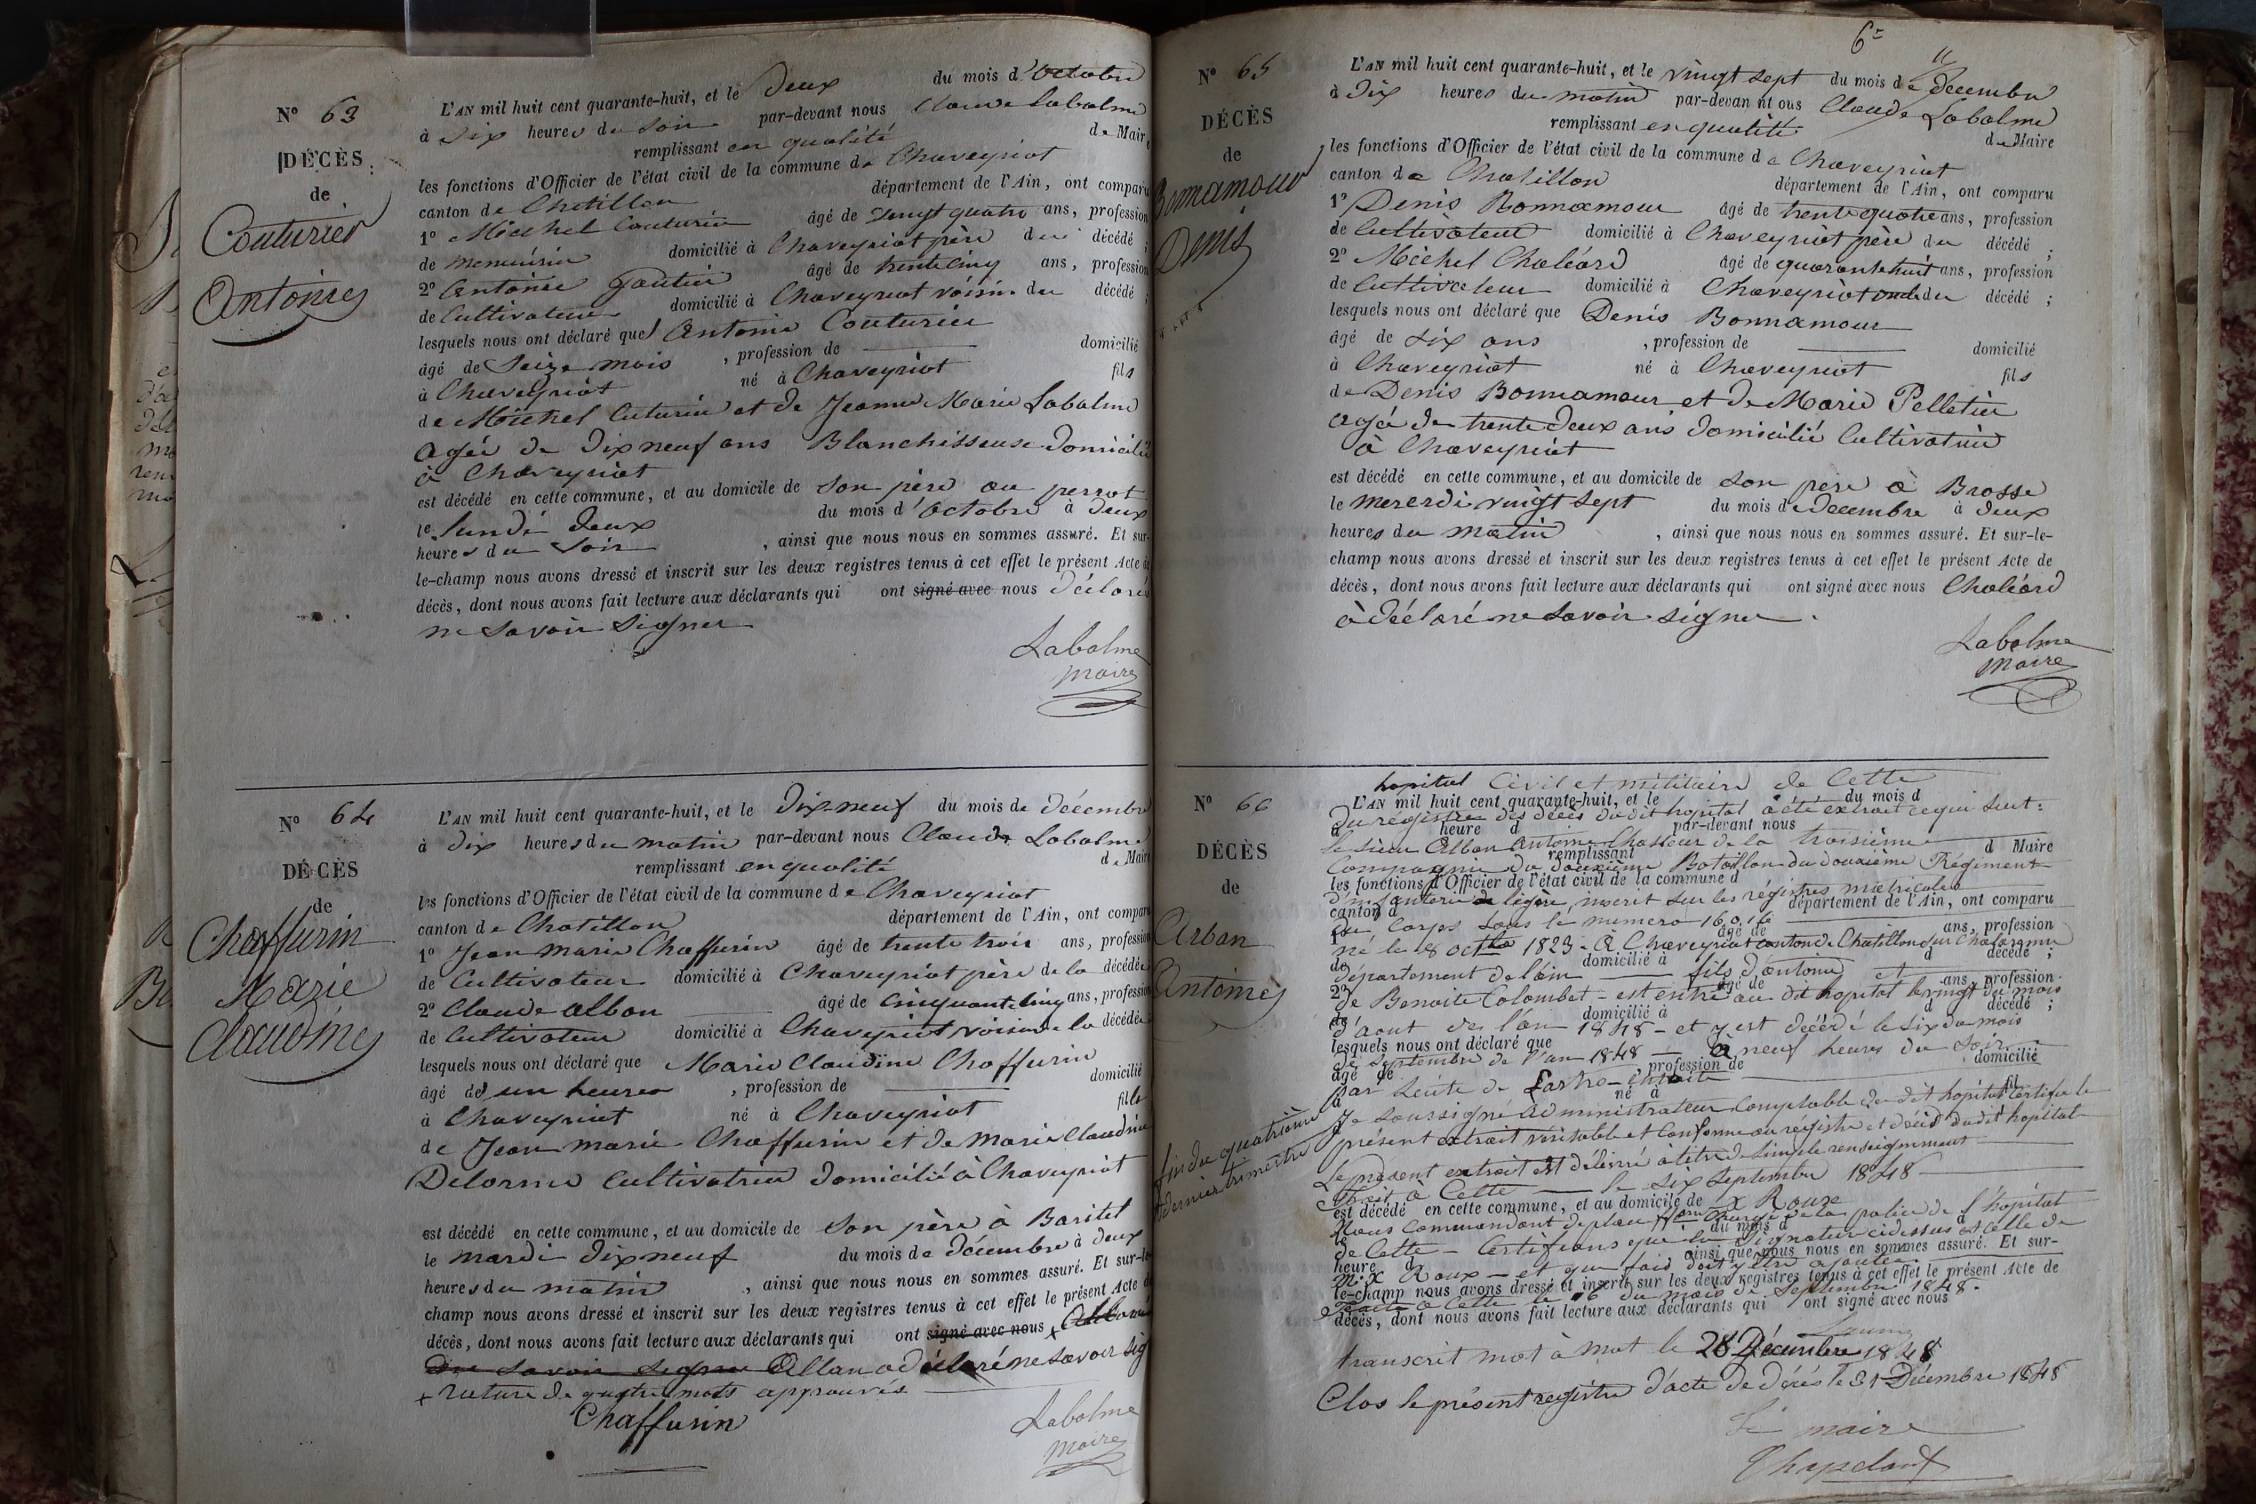 N° 63
DÉCÈS
de
Couturier
Antoine
L'AN mil huit cent quarante-huit, et le deux du mois d'octobre
à six heures du soir par-devant nous Claude Labalme
remplissant en qualité de Maire
les fonctions d'Officier de l'état civil de la commune de Chaveyriat
canton de Chatillon département de l'Ain, ont comparu
1° Michel Couturier âgé de vingt quatre ans, profession
de menuisier domicilié à Chaveyriat père du décédé ;
2° Antoine Gautier âgé de trente cinq ans, profession
de Cultivateur domicilié à Chaveyriat voisin du décédé ;
lesquels nous ont déclaré que Antoine Couturier
âgé de Seize mois , profession de domicilié
à Chaveyriat né à Chaveyriat fils
de Michel Cuturier et de Jeanne Marie Labalme
agée de dix neuf ans Blanchisseuse domicilié
à Chaveyriat
est décédé en cette commune, et au domicile de son père au perrat
le lundi deux du mois d'octobre à deux
heures du soir , ainsi que nous nous en sommes assuré. Et sur-
le-champ nous avons dressé et inscrit sur les deux registres tenus à cet effet le présent Acte de
décès, dont nous avons fait lecture aux déclarants qui ont signé avec nous déclaré
ne savoir signer
Labalme
maire
N° 64
DÉCÈS
de
Chaffurin
Marie
Claudine
L'AN mil huit cent quarante-huit, et le dix neuf du mois de décembre
à dix heures du matin par-devant nous Claude Labalme
remplissant en qualité de Maire
les fonctions d'Officier de l'état civil de la commune de Chaveyriat
canton de Chatillon département de l'Ain, ont comparu
1° Jean marie Chaffurin âgé de trente trois ans, profession
de Cultivateur domicilié à Chaveyriat père de la décédée
2° Claude alban âgé de cinquante cinq ans, profession
de Cultivateur domicilié à Chaveyriat voisin de la décédée
lesquels nous ont déclaré que Marie Claudine Chaffurin
âgé de un heures , profession de domicilié
à Chaveyriat né à Chaveyriat fille
de Jean marie Chaffurin et de Marie Claudine
Delorme Cultivatrice domicilié à Chaveyriat
est décédé en cette commune, et au domicile de son père à Baritel
le mardi dix neuf du mois de décembre à deux
heures du matin , ainsi que nous nous en sommes assuré. Et sur-le-
champ nous avons dressé et inscrit sur les deux registres tenus à cet effet le présent Acte de
décès, dont nous avons fait lecture aux déclarants qui ont signé avec nous
ne savoir signer Alban a déclaré ne savoir sig
+ rature de quatre mots approuvés
Chaffurin
Labalme
maire
N° 65
DÉCÈS
de
Bonnamour
Denis
L'AN mil huit cent quarante-huit, et le vingt sept du mois de decembre
à dix heures du matin par-devan nt ous Claude Labalme
remplissant en qualité de Maire
les fonctions d'Officier de l'état civil de la commune de Chaveyriat
canton de Chatillon département de l'Ain, ont comparu
1° Denis Bonnamour âgé de trente quatre ans, profession
de Cultivateur domicilié à Chaveyriat père du décédé ;
2° Michel Chaléard âgé de quarante huit ans, profession
de Cultivateur domicilié à Chaveyriat oncle du décédé ;
lesquels nous ont déclaré que Denis Bonnamour
âgé de six ans , profession de domicilié
à Chaveyriat né à Chaveyriat fils
de Denis Bonnamour et de Marie Pelletier
agé de trente deux ans domicilié Cultivatrice
à Chaveyriat
est décédé en cette commune, et au domicile de son père à Brosse
le mercredi vingt sept du mois de décembre à deux
heures du matin , ainsi que nous nous en sommes assuré. Et sur-le-
champ nous avons dressé et inscrit sur les deux registres tenus à cet effet le présent Acte de
décès, dont nous avons fait lecture aux déclarants qui ont signé avec nous Chaléard
à déclaré ne savoir signer.
Labalme
maire
N° 66
DÉCÈS
de
Arban
Antoine
hopital Civil et militaire de Cette
L'AN mil huit cent quarante-huit, et le du mois d
du registre des décès dudit hopital a été extrait ce qui suit :
à heure d par-devant nous
le sieur Alban Antoine Chasseur de la troisième
remplissant d Maire
Compagnie du deuxième Bataillon du douzième Régiment
les fonctions d'Officier de l'état civil de la commune d
d'infanterie légère, inscrit sur les régistres matricules
canton d département de l'Ain, ont comparu
du Corps sous le numero
âgé de ans, profession
né le 8 octbre 1823 - à Chaveyriat canton de Chatillon sur Chalaronne
de domicilié à d décédé ;
département de l'ain fils d'antoine et
2° âgé de ans, profession
de Benoite Colombet - est entré au dit hopital le vingt du mois
de domicilié à d décédé ;
d'aout de l'an 1848 - et y est décédé le six du mois
lesquels nous ont déclaré que
de septembre de l'an 1848 - à neuf heures du soir
âgé de , profession de domicilié
par suite de
à né à fil
Je soussigné administrateur Comptable du dit hopital Certifie le
présent extrait véritable et Conforme au registre et décès dudit hopital
fin du quatrième
et dernier trimestre
Le présent extrait est délivré à titre de simple renseignement
à Cette le six septembre 1848
est décédé en cette commune, et au domicile de X Roux
Nous Commandant de place chargé de la police de l'hopital
le du mois d à
de Cette - Certifions que la signature ci dessus est celle de
heure d , ainsi que nous nous en sommes assuré. Et sur-
M. X Roux - et que foi doit y être ajoutée
le-champ nous avons dressé et inscrit sur les deux registres tenus à cet effet le présent Acte de
à Cette le 6 du mois de Septembre 1848.
décès, dont nous avons fait lecture aux déclarants qui ont signé avec nous
transcrit mot à mot le 28 Décembre 1848
Clos le présent registre d'acte de décès le 31 Décembre 1848
Le maire